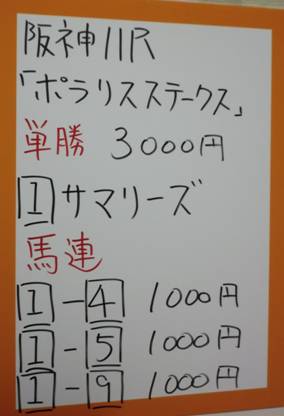 阪神11R
「ポラリスステークス」
単勝 3000円
1 サマリーズ
馬連
1-4 1000円
1-5 1000円
1-9 1000円